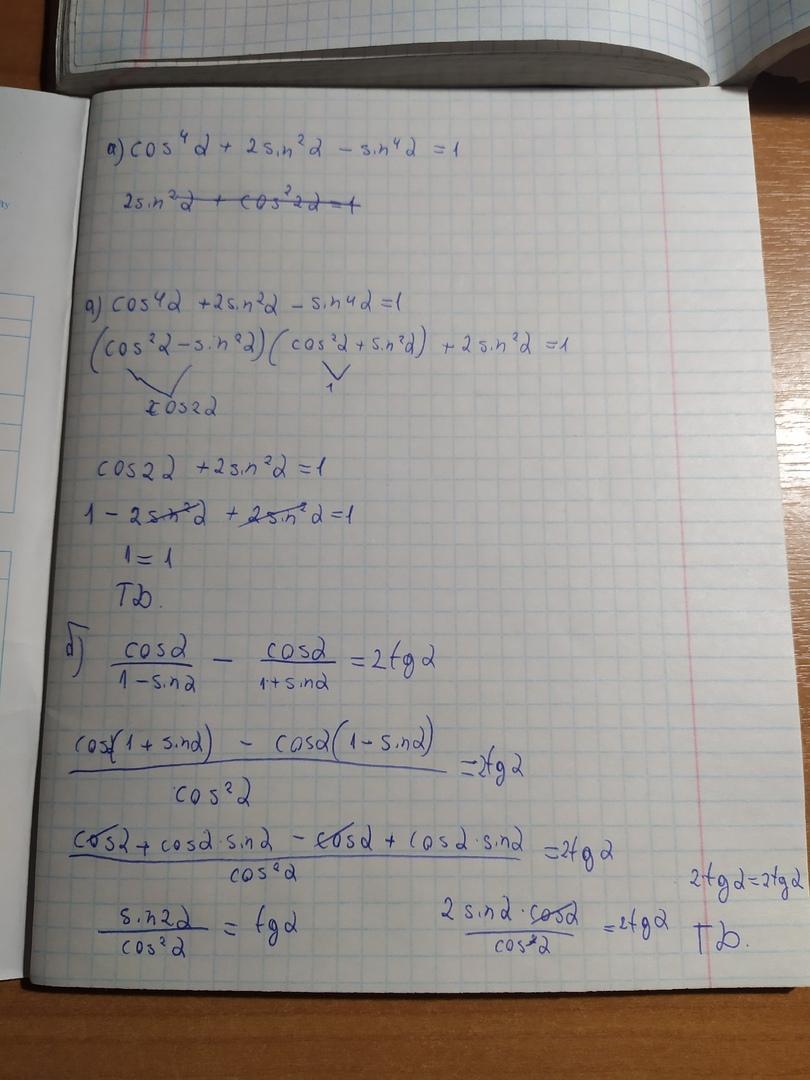 а) cos⁴α + 2sin²α − sin⁴α = 1
2sin²α + cos²2α = 1
а) cos⁴α + 2sin²α − sin4α = 1
(cos²α − sin²α)(cos²α + sin²α) + 2sin²α = 1
cos2α 1
cos2α + 2sin²α = 1
1 − 2sin²α + 2sin²α = 1
1 = 1
ТД.
б) cosα/(1 − sinα) − cosα/(1 + sinα) = 2tgα
(cos(1 + sinα) − cosα(1 − sinα))/cos²α = 2tgα
(cosα + cosα·sinα − cosα + cosα·sinα)/cos²α = 2tgα
sin2α/cos²α = tgα 2sinα·cosα/cos²α = 2tgα 2tgα = 2tgα
ТД.